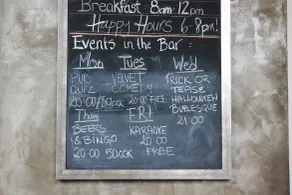 Breakfast 8am-12pm
Happy Hours 6-8pm!
Events in the Bar:
Mon Tues Wed
PUB VELVET TRICK OR
QUIZ COMEDY TEASE
20:00/50czk 20:00 FREE HALLOWEEN
BURLESQUE
Thurs FRI 21:00
BEERS KARAOKE
& BINGO 20:00
20:00 50CZK FREE